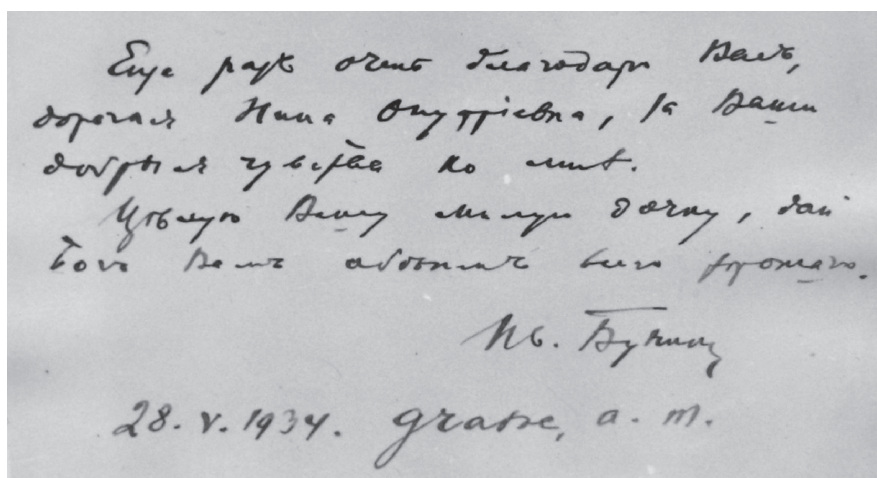 Еще разъ очень благодарю Васъ,
дорогая Нина Онуфріевна, за Ваши
добрыя чувства ко мнѣ.
Цѣлую Вашу милую дочку, дай
Богъ Вамъ обѣимъ всего хорошаго.
Ив. Бунинъ
28. V. 1934. Grasse, a. m.